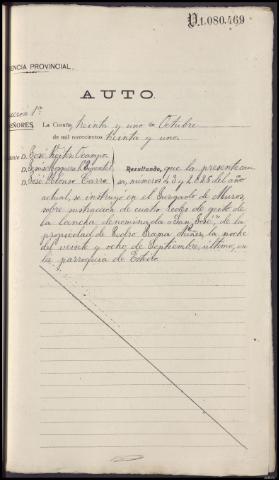 P.1.080.469
ENCIA PROVINCIAL.
AUTO.
1ª
EÑORES. La Coruña, treinta y uno de Octubre
de mil novecientos treinta y uno.
D. José
D.
D. José Alonso Carro
Resultando, que la presente cau
sa, números 43 y 2.885 del año
actual, se instruyó en el Juzgado de Muros,
sobre sustracción de cuatro de
de la lancha denominada "San José", de la
propiedad de Pedro la noche
del veinte y ocho de Septiembre último, en
la parroquia de